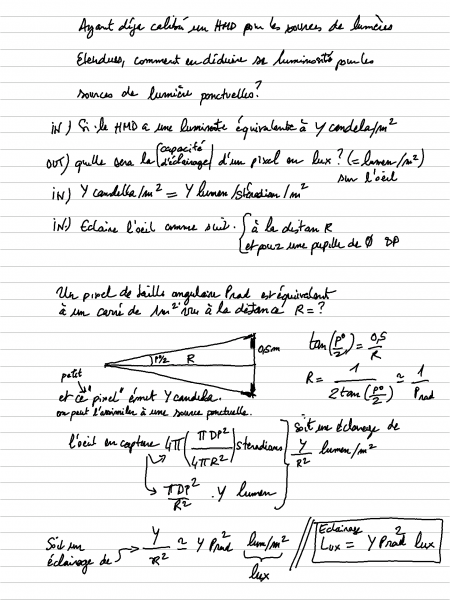 Ayant déja calibré un HMD pour les sources de lumières
Etendues, comment en déduire sa luminosité pour les
sources de lumière ponctuelles?
IN) Si le HMD a une luminosité équivalente à Y candela/m²
OUT) quelle sera la (capacité d'éclairage) d'un pixel en lux? (= lumen/m²)
sur l'oeil
IN) Y candella/m² = Y lumen/stéradian/m²
IN.) Eclaire l'oeil comme suit. { à la distan R
et pour une pupille de Ø DP
Un pixel de taille angulaire Prad est équivalent
à un carré de 1m² vu à la distance R=?
P/2 R 0,5m
tan(P°/2) = 0,5/R
R = 1/(2tan(P°/2)) ≃ 1/Prad
petit
et ce "pixel" émet Y candela.
on peut l'assimiler à une source ponctuelle.
l'oeil en capture 4π(πDP²/4πR²) steradians
→ πDP²/R² . Y lumen
soit un éclairage de
Y/R² lumen/m²
Soit un
éclairage de → Y/R² ≃ Y Prad² lum/m²
lux
Eclairage
Lux = Y Prad² lux